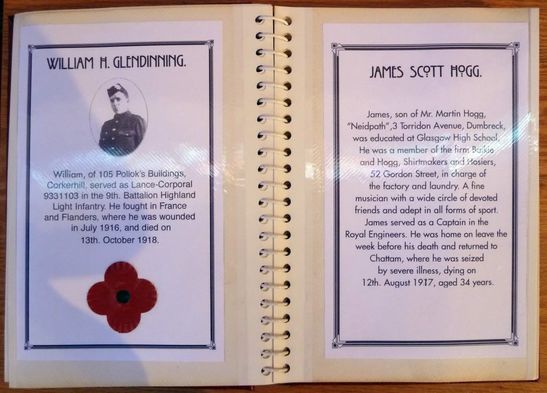 WILLIAM H. GLENDINNING.
William, of 105 Pollok's Buildings,
Corkerhill, served as Lance-Corporal
9331103 in the 9th. Battalion Highland
Light Infantry. He fought in France
and Flanders, where he was wounded
in July 1916, and died on
13th. October 1918.
JAMES SCOTT HOGG.
James, son of Mr. Martin Hogg,
"Neidpath",3 Torridon Avenue, Dumbreck,
was educated at Glasgow High School.
He was a member of the firm Baikie
and Hogg, Shirtmakers and Hosiers,
52 Gordon Street, in charge of
the factory and laundry. A fine
musician with a wide circle of devoted
friends and adept in all forms of sport.
James served as a Captain in the
Royal Engineers. He was home on leave the
week before his death and returned to
Chattam, where he was seized
by severe illness, dying on
12th. August 1917, aged 34 years.